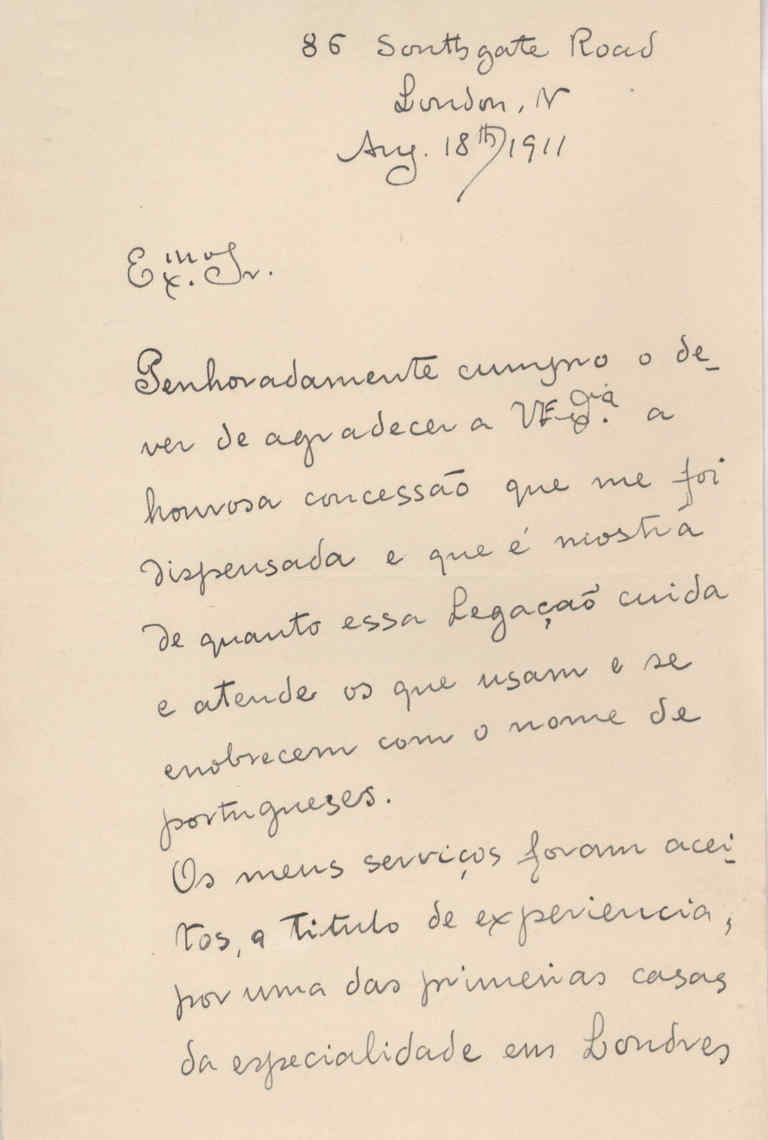 86 Southgate Road
London, N
Aug. 18th/1911
Exmo. Sr.
Penhoradamente cumpro o de-
ver de agradecer a VExcia. a
honrosa concessão que me foi
dispensada e que é mostra
de quanto essa Legação cuida
e atende os que usam e se
enobrecem com o nome de
portugueses.
Os meus serviços foram acei-
tos, a titulo de experiencia,
por uma das primeiras casas
da especialidade em Londres